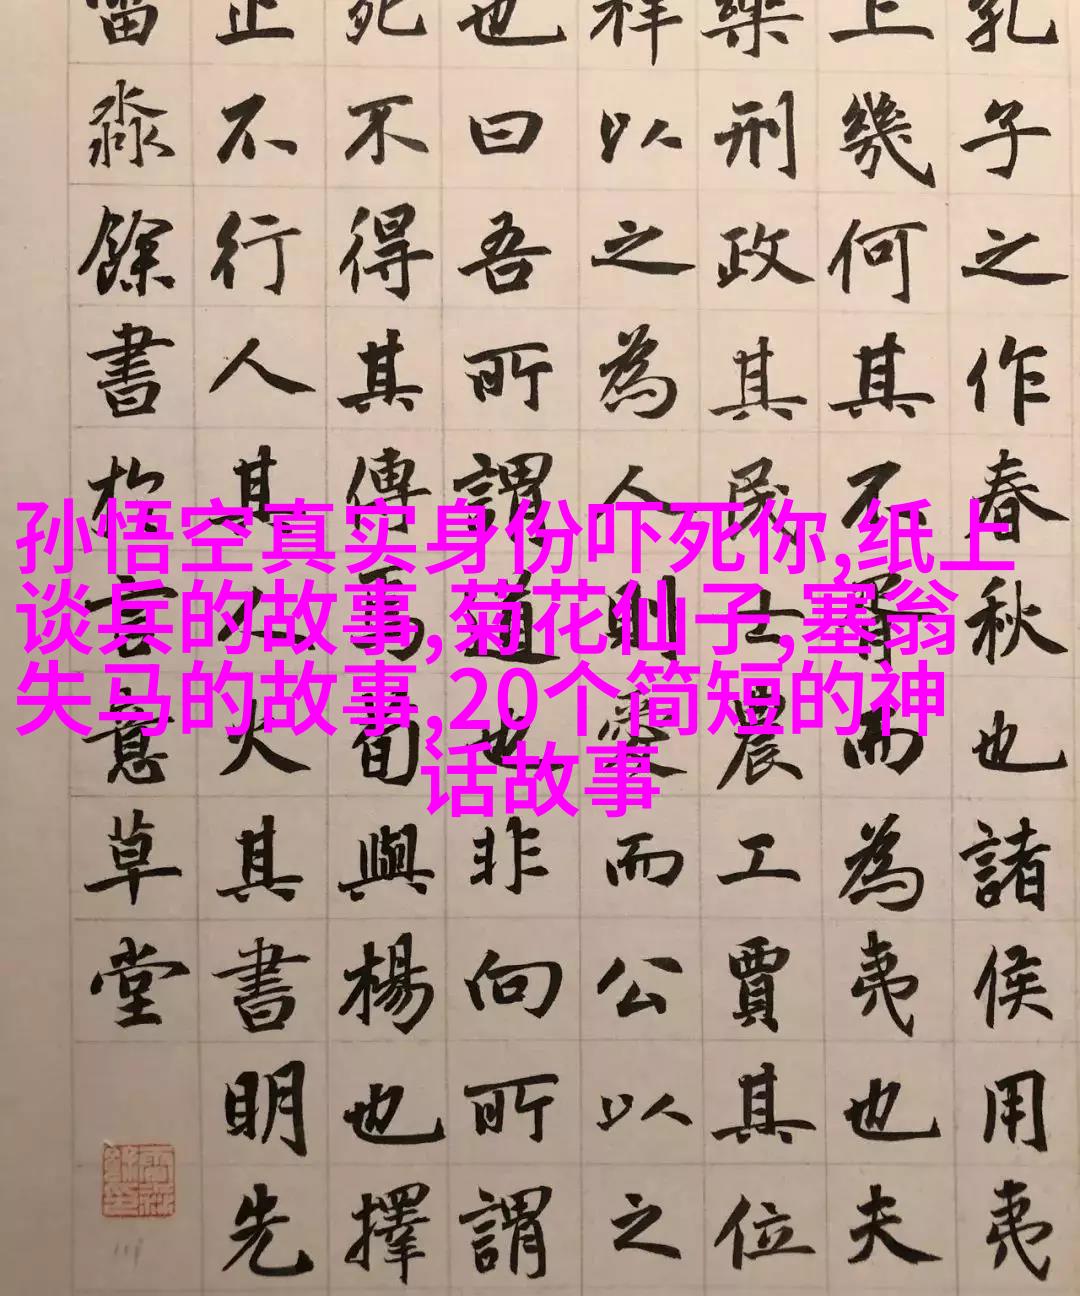 孔子之作春秋也諸侯用夷
上幾何其不胥而為夷也夫
樂刑政其民士農工賈其位
祥以之為人則愛而公以之
也曰吾所謂道也非向所謂
死不得其傳焉荀與楊也擇
止不行人其人火其書明先
淼餘書於言意草堂
孙悟空真实身份吓死你,纸上
谈兵的故事,菊花仙子,塞翁
失马的故事,20个简短的神
话故事